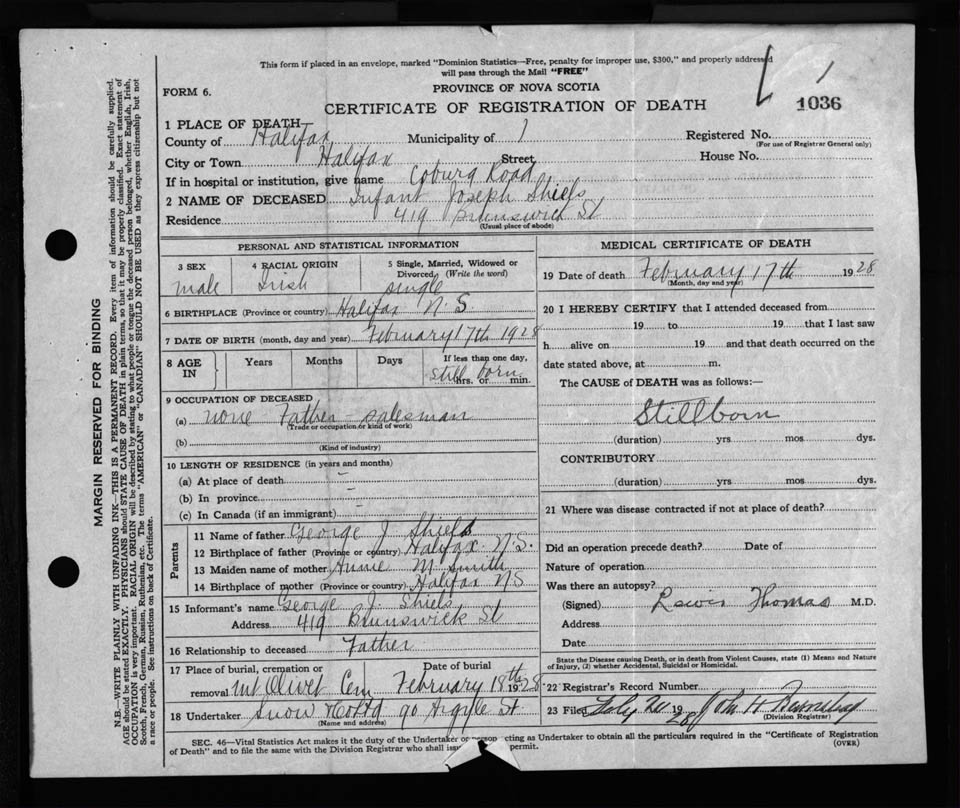 This form if placed in an envelope, marked "Dominion Statistics—Free, penalty for improper use, $300," and properly addressed
will pass through the Mail "FREE"
FORM 6.
PROVINCE OF NOVA SCOTIA
CERTIFICATE OF REGISTRATION OF DEATH
1036
1 PLACE OF DEATH
County of Halifax Municipality of 1 Registered No.
(For use of Registrar General only)
City or Town Halifax Street House No.
If in hospital or institution, give name Coburg Road
2 NAME OF DECEASED Infant Joseph Shiels
Residence 419 Brunswick St
(Usual place of abode)
PERSONAL AND STATISTICAL INFORMATION
3 SEX 4 RACIAL ORIGIN 5 Single, Married, Widowed or
Divorced (Write the word)
male Irish single
6 BIRTHPLACE (Province or country) Halifax N.S
7 DATE OF BIRTH (month, day and year) February 17th 1928
8 AGE IN Years Months Days If less than one day,
still born
hrs. or min.
9 OCCUPATION OF DECEASED
(a) none Father - salesman
(Trade or occupation or kind of work)
(b)
(Kind of industry)
10 LENGTH OF RESIDENCE (in years and months)
(a) At place of death -
(b) In province -
(c) In Canada (if an immigrant)
Parents
11 Name of father George J. Shiels
12 Birthplace of father (Province or country) Halifax N.S.
13 Maiden name of mother Annie M Smith
14 Birthplace of mother (Province or country) Halifax NS
15 Informant's name George J. Shiels
Address 419 Brunswick St
16 Relationship to deceased Father
17 Place of burial, cremation or Date of burial
removal Mt Olivet Cem February 18th 1928
18 Undertaker Snow & Co Ltd 90 Argyle St.
(Name and address)
MEDICAL CERTIFICATE OF DEATH
19 Date of death February 17th 1928
(Month, day and year)
20 I HEREBY CERTIFY that I attended deceased from
19 to 19 that I last saw
h alive on 19 and that death occurred on the
date stated above, at m.
The CAUSE of DEATH was as follows:—
Stillborn
(duration) yrs. mos. dys.
CONTRIBUTORY
(duration) yrs. mos. dys.
21 Where was disease contracted if not at place of death?
Did an operation precede death? Date of
Nature of operation
Was there an autopsy?
(Signed) Lewis Thomas M.D.
Address
Date
State the Disease causing Death, or in death from Violent Causes, state (1) Means and Nature
of Injury, (2) whether Accidental, Suicidal or Homicidal.
22 Registrar's Record Number
23 Filed 1928 John H
(Division Registrar)
SEC. 46—Vital Statistics Act makes it the duty of the Undertaker or person acting as Undertaker to obtain all the particulars required in the "Certificate of Registration
of Death" and to file the same with the Division Registrar who shall issue permit. (OVER)
MARGIN RESERVED FOR BINDING
N.B.—WRITE PLAINLY WITH UNFADING INK—THIS IS A PERMANENT RECORD. Every item of information should be carefully supplied.
AGE should be stated EXACTLY. PHYSICIANS should STATE CAUSE OF DEATH in plain terms, so that it may be properly classified. Exact statement of
OCCUPATION is very important. RACIAL ORIGIN will be described by stating to what people or tongue the deceased person belonged, whether English, Irish,
Scotch, French, German, Russian, Ruthenian, etc. The terms "AMERICAN" or "CANADIAN" SHOULD NOT BE USED as they express citizenship but not
a race or people. See instructions on back of Certificate.